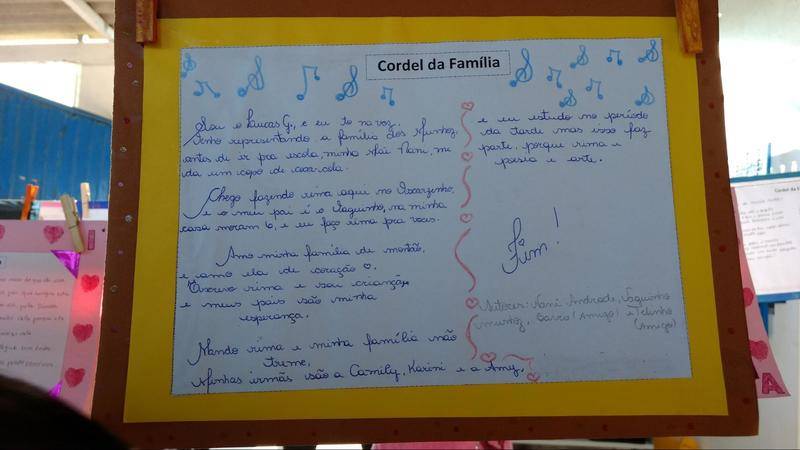 Cordel da Família
Sou o Lucas G, e eu to na voz.
Venho representando a família dos Munhoz,
antes de ir pra escola, minha Mãi Nani, me
da um copo de coca-cola.
Chego fazendo rima aqui no
e o meu pai é o Vaguinho, na minha
casa moram 6, e eu faço rima pra voces.
Amo minha família de montão,
e amo ela de coração
Escrevo rima e sou criança
e meus pais são minha
esperança.
Mando rima e minha família não
treme,
Minhas irmãs são a Camily, Karini e a Amy,
e eu estudo no período
da tarde mas isso faz
parte, porque rima e
poesia e arte.
Fim!
Autores: Nani Andrade, Vaguinho
munhoz, (Amigo) e
(Amigo)